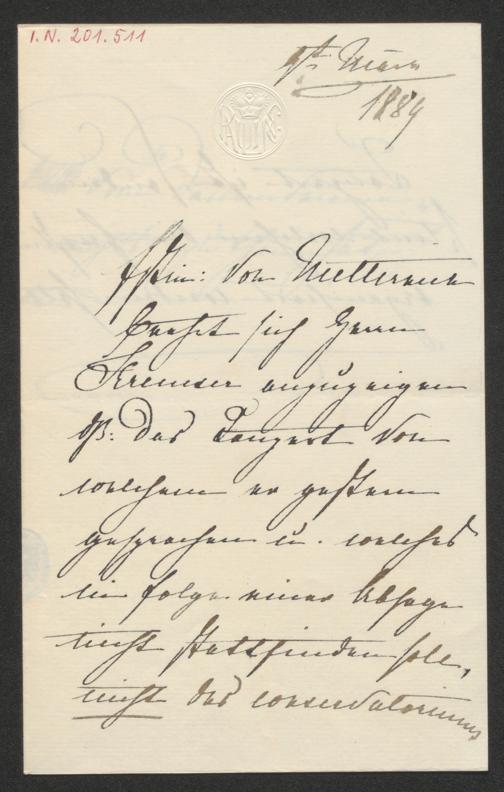 I.N. 201.511
März
1889
Fstin: von Metternich
beehrt sich Herrn
Kremser anzuzeigen
dß: das Conzert von
welchem er gestern
gesprochen u. welches
in folge einer Absage
nicht stattfinden soll,
nicht das Conservatoriums